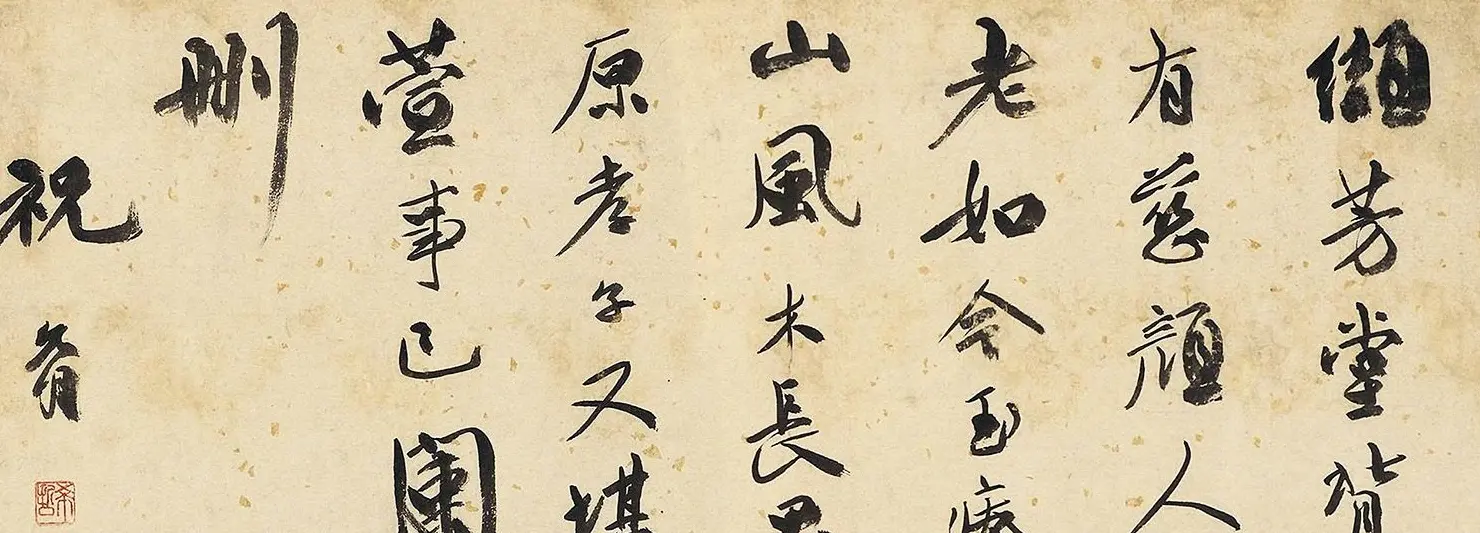 芳堂背
有慈顏人
老如今玉
山風木長
原孝子又堪
萱事已闌
刪
祝肴